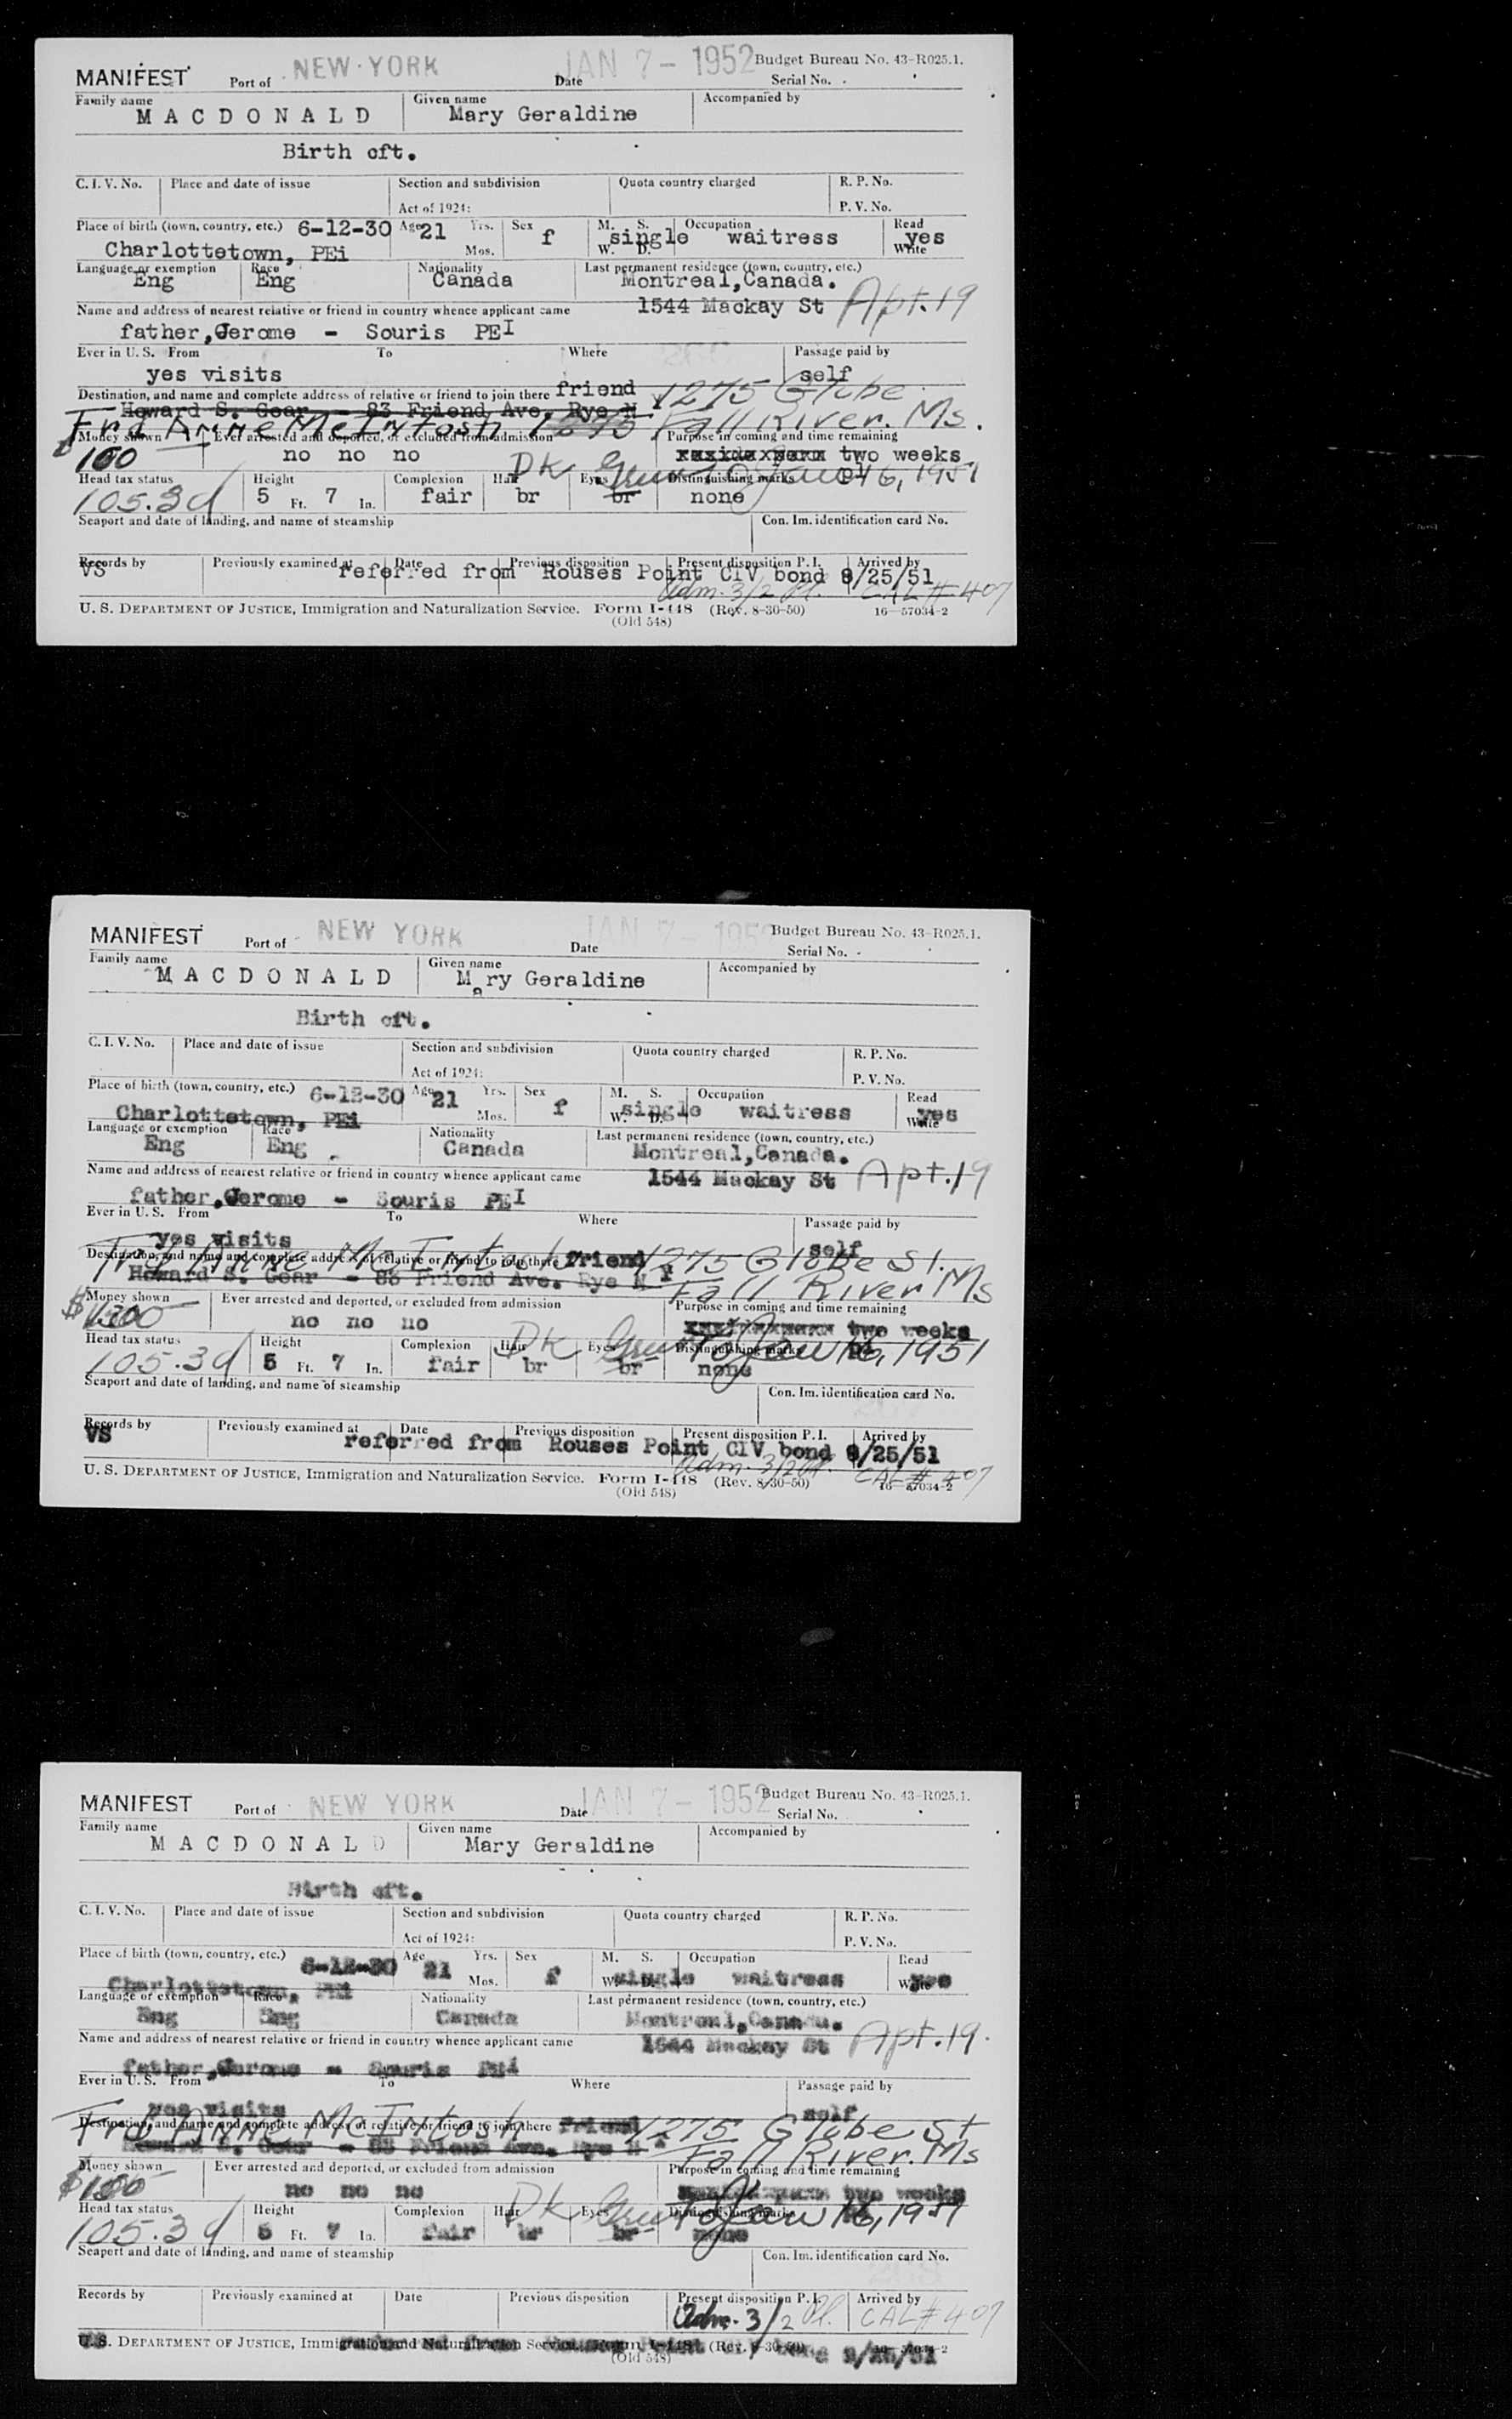 MANIFEST Port of NEW YORK Date JAN 7 - 1952 Budget Bureau No. 43-R025.1.
Serial No.
Family name Given name Accompanied by
MACDONALD Mary Geraldine
Birth cft.
C. I. V. No. Place and date of issue Section and subdivision Quota country charged R. P. No.
Act of 1924: P. V. No.
Place of birth (town, country, etc.) 6-12-30 Age 21 Yrs. Sex f M. S. Occupation Read
Charlottetown, PEi Mos. W. D. single waitress Write yes
Language or exemption Race Nationality Last permanent residence (town, country, etc.)
Eng Eng Canada Montreal,Canada.
Name and address of nearest relative or friend in country whence applicant came 1544 Mackay St Apt.19
father,Jerome - Souris PEI
Ever in U. S. From To Where Passage paid by
yes visits self
Destination, and name and complete address of relative or friend to join there friend 1275 Globe
Howard S. Gear - 83 Friend Ave. Rye N Y
Frd Anne McIntosh 1275 Fall River. Ms.
Money shown Ever arrested and deported, or excluded from admission Purpose in coming and time remaining
100 no no no two weeks
DK Grn To Jan 16, 1951
Head tax status Height Complexion Hair Eyes Distinguishing marks
105.3d 5 Ft. 7 In. fair br br none
Seaport and date of landing, and name of steamship Con. Im. identification card No.
Records by Previously examined at Date Previous disposition Present disposition P. I. Arrived by
VS referred from Rouses Point CIV bond 9/25/51
Adm. 3/2 CAL # 407
U. S. DEPARTMENT OF JUSTICE, Immigration and Naturalization Service. Form I-448 (Rev. 8-30-50) 16—57034-2
(Old 548)
MANIFEST Port of NEW YORK Date JAN 7 - 1952 Budget Bureau No. 43-R025.1.
Serial No.
Family name Given name Accompanied by
MACDONALD Mary Geraldine
Birth cft.
C. I. V. No. Place and date of issue Section and subdivision Quota country charged R. P. No.
Act of 1924: P. V. No.
Place of birth (town, country, etc.) 6-12-30 Age 21 Yrs. Sex f M. S. Occupation Read
Charlottetown, PEi Mos. W. D. single waitress Write yes
Language or exemption Race Nationality Last permanent residence (town, country, etc.)
Eng Eng Canada Montreal,Canada.
Name and address of nearest relative or friend in country whence applicant came 1544 Mackay St Apt.19
father,Jerome - Souris PEI
Ever in U. S. From To Where Passage paid by
yes visits self
Frd Anne McIntosh 1275 Globe St.
Destination, and name and complete address of relative or friend to join there friend
Howard S. Gear - 83 Friend Ave. Rye N Y Fall River Ms
Money shown Ever arrested and deported, or excluded from admission Purpose in coming and time remaining
$ no no no two weeks
DK Grn To Jan 16, 1951
Head tax status Height Complexion Hair Eyes Distinguishing marks
105.3d 5 Ft. 7 In. fair br br none
Seaport and date of landing, and name of steamship Con. Im. identification card No.
Records by Previously examined at Date Previous disposition Present disposition P. I. Arrived by
VS referred from Rouses Point CIV bond 9/25/51
Adm. 3/2 CAL # 407
U. S. DEPARTMENT OF JUSTICE, Immigration and Naturalization Service. Form I-448 (Rev. 8-30-50) 16—57034-2
(Old 548)
MANIFEST Port of NEW YORK Date JAN 7 - 1952 Budget Bureau No. 43-R025.1.
Serial No.
Family name Given name Accompanied by
MACDONALD Mary Geraldine
Birth cft.
C. I. V. No. Place and date of issue Section and subdivision Quota country charged R. P. No.
Act of 1924: P. V. No.
Place of birth (town, country, etc.) 6-12-30 Age 21 Yrs. Sex f M. S. Occupation Read
Charlottetown, PEi Mos. W. D. single waitress Write yes
Language or exemption Race Nationality Last permanent residence (town, country, etc.)
Eng Eng Canada Montreal,Canada.
Name and address of nearest relative or friend in country whence applicant came 1544 Mackay St Apt.19.
father,Jerome - Souris PEI
Ever in U. S. From To Where Passage paid by
yes visits self
Frd Anne McIntosh 1275 Globe St
Destination, and name and complete address of relative or friend to join there friend
Howard S. Gear - 83 Friend Ave. Rye N Y Fall River. Ms
Money shown Ever arrested and deported, or excluded from admission Purpose in coming and time remaining
$100 no no no two weeks
DK Grn To Jan 16, 1951
Head tax status Height Complexion Hair Eyes Distinguishing marks
105.3d 5 Ft. 7 In. fair br br none
Seaport and date of landing, and name of steamship Con. Im. identification card No.
Records by Previously examined at Date Previous disposition Present disposition P. I. Arrived by
Adm. 3/2 CAL # 407
U. S. DEPARTMENT OF JUSTICE, Immigration and Naturalization Service. Form I-448 (Rev. 8-30-50)
(Old 548) 9/25/51